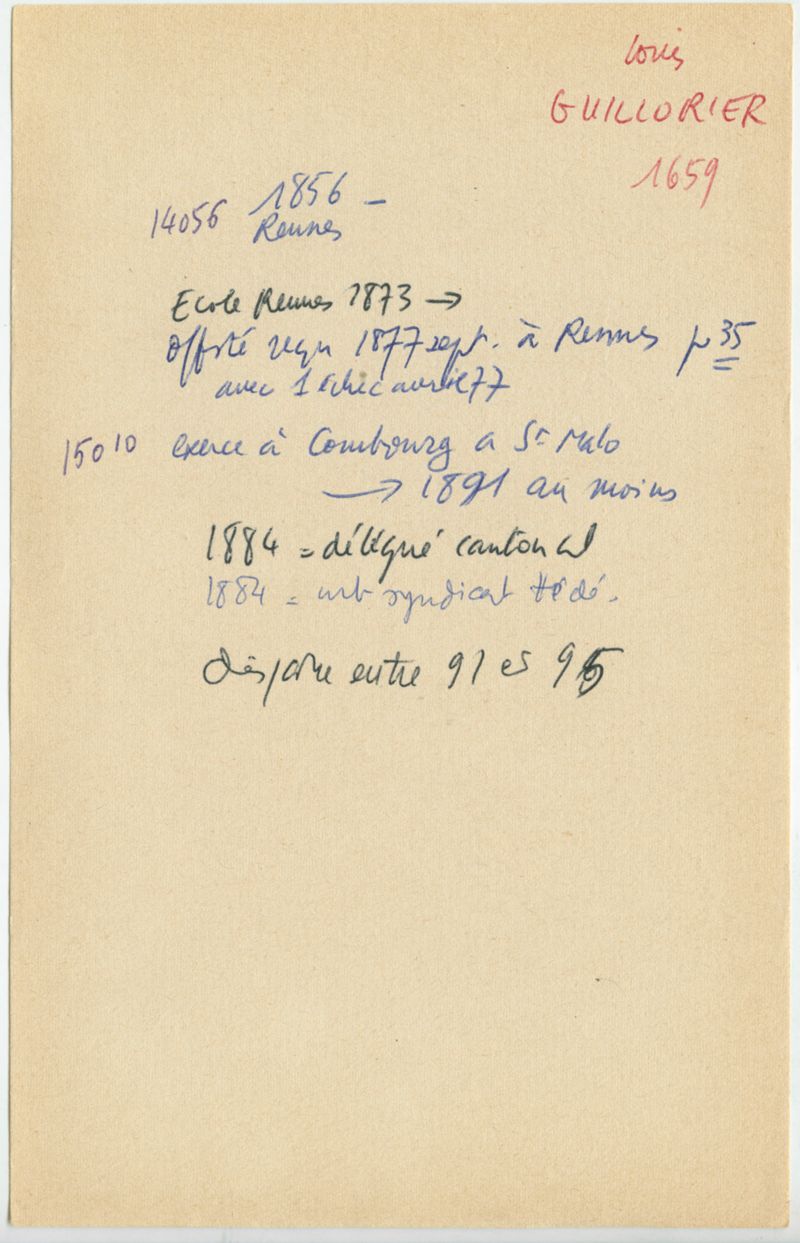 Louis
GUILLORIER
1659
1856 -
14056 Rennes
Ecole Rennes 1873 →
reçu 1877 sept. à Rennes p 35
avec 1 échec avril 77
15010 exerce à Combourg a St Malo
→ 1891 au moins
1884 = délégué cantonal
1884 = mb syndicat Hédé.
disparu entre 91 et 95